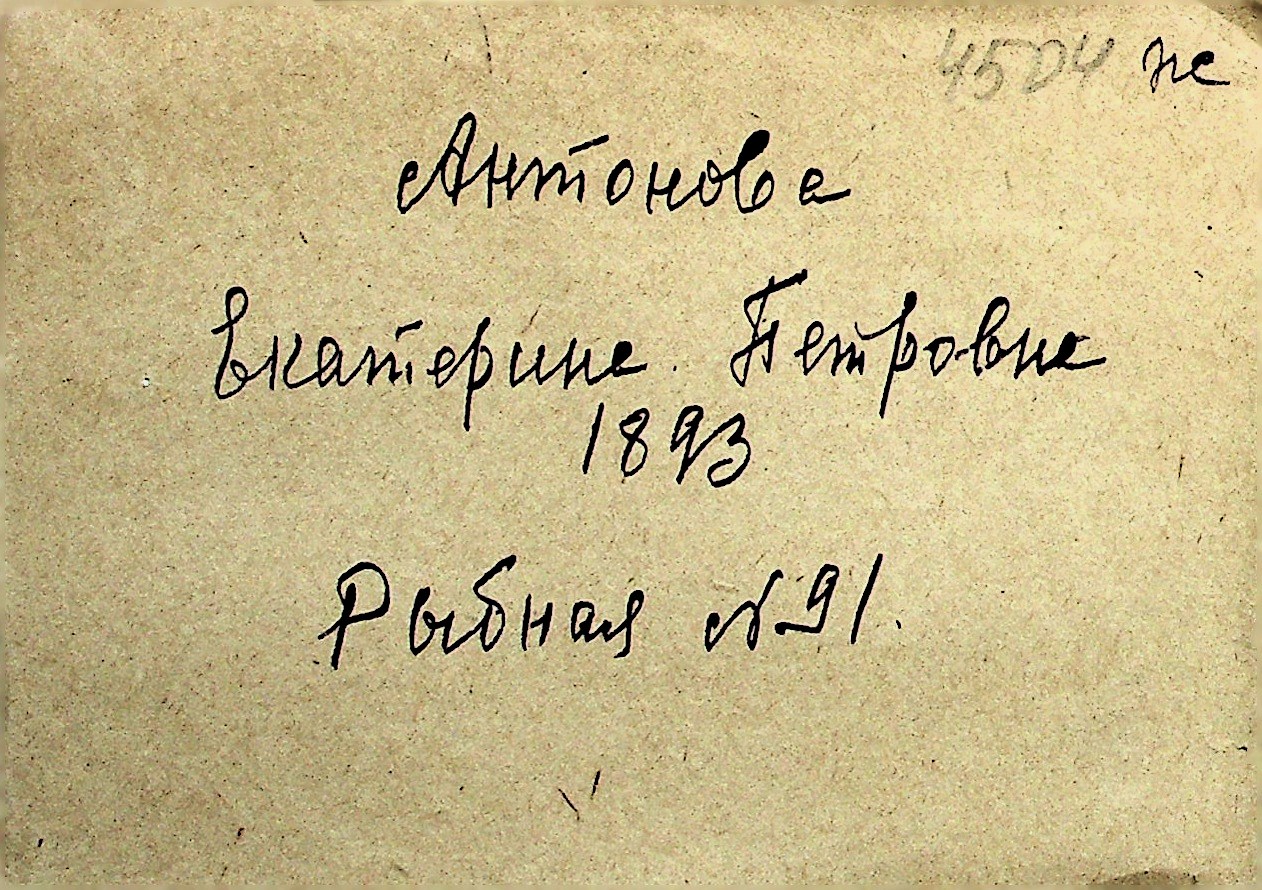 4504 не
Антонова
Екатерина Петровна
1893
Рыбная №91.